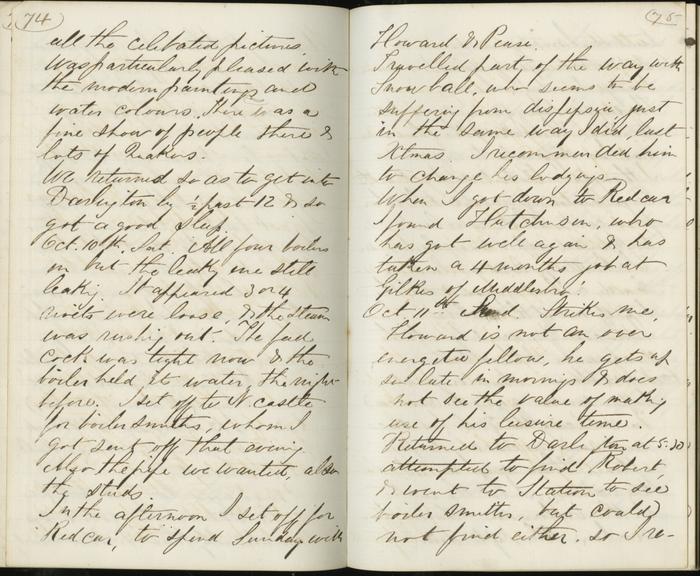 74
all the celebrated pictures
was particularly pleased with
the modern paintings and
water colours. There was a
fine show of people there &
lots of Quakers.
We returned so as to get into
Darlington by ½ past 12 & so
got a good sleep
Oct. 10th. Sat. All four boilers
on but the leaky one still
leaky. It appeared 3 or 4
rivets were loose, & the steam
was rushing out. The feed
cock was tight now & the
boiler held its water the night
before. I set off to N. Castle
for boiler smiths, whom I
got sent off that evening
Also the pipe we wanted, also
the studs.
In the afternoon I set off for
Redcar, to spend Sunday with
75
Howard & Pease.
Travelled party of the way with
Snowball, who seems to be
suffering from dispepsia just
in the same way I did, last
Xtmas. I recommended him
to change his lodgings
When I got down to Redcar
I found Hutchinson, who
has got well again & has
taken a 4 months job at
Gilkes of Middlesbro'
Oct 11th Strikes me,
Howard is not an over
energetic fellow, he gets up
so late in mornings & does
not see the value of making
use of his leisure time.
Returned to Darlington at 5.30
attempted to find Robert
& went to Station to see
boiler smiths, but could
not find either. so I re-